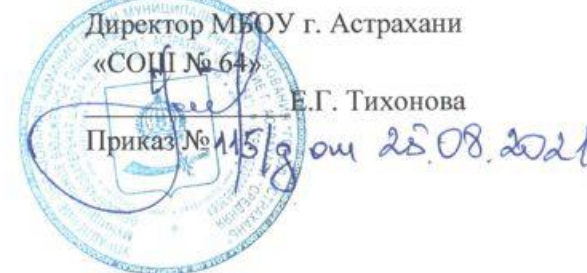 Директор МБОУ г. Астрахани
«СОШ № 64»
Е.Г. Тихонова
Приказ № 115/д от 25.08.2021